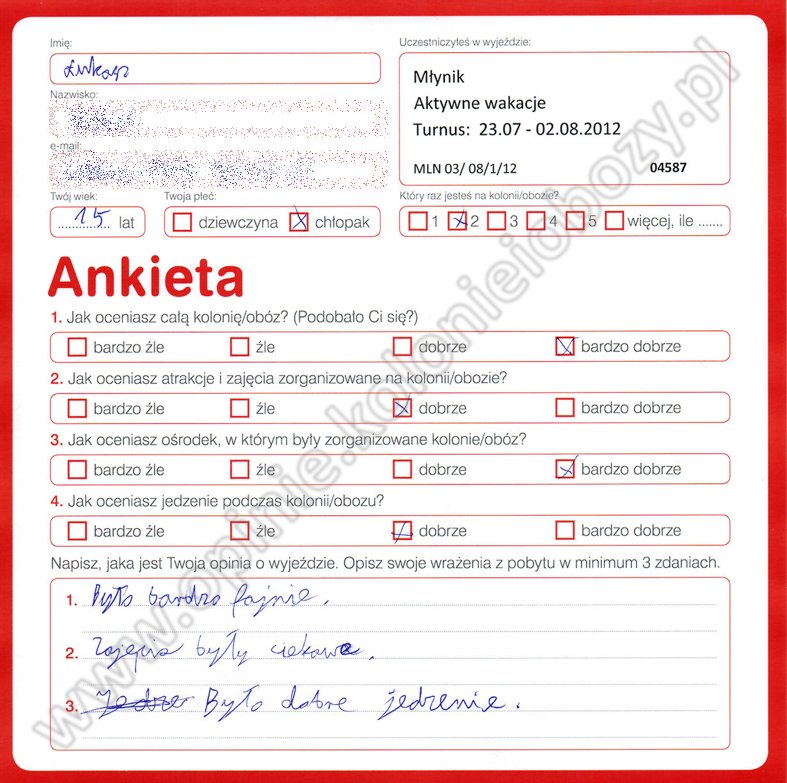 Imię:
Uczestniczyłeś w wyjeździe:
Łukasz
Młynik
Aktywne wakacje
Turnus: 23.07 - 02.08.2012
MLN 03/ 08/1/12 04587
Nazwisko:
e-mail:
Twój wiek:
Twoja płeć:
Który raz jesteś na kolonii/obozie?
15 lat
dziewczyna chłopak
1 2 3 4 5 więcej, ile .......
Ankieta
1. Jak oceniasz całą kolonię/obóz? (Podobało Ci się?)
bardzo źle źle dobrze bardzo dobrze
2. Jak oceniasz atrakcje i zajęcia zorganizowane na kolonii/obozie?
bardzo źle źle dobrze bardzo dobrze
3. Jak oceniasz ośrodek, w którym były zorganizowane kolonie/obóz?
bardzo źle źle dobrze bardzo dobrze
4. Jak oceniasz jedzenie podczas kolonii/obozu?
bardzo źle źle dobrze bardzo dobrze
Napisz, jaka jest Twoja opinia o wyjeździe. Opisz swoje wrażenia z pobytu w minimum 3 zdaniach.
1. Było bardzo fajnie.
2. Zajęcia były ciekawe.
3. Było dobre jedzenie.
www.opinie.kolonieiobozy.pl